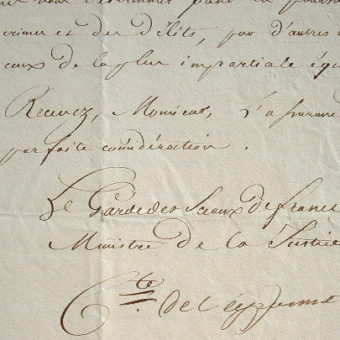 crimes et des délits, par d'autres
ceux de la plus impartiale équi
Recevez, Monsieur, l'assurance
parfaite considération.
Le Garde des Sceaux de France
Ministre de la Justice
Cte de